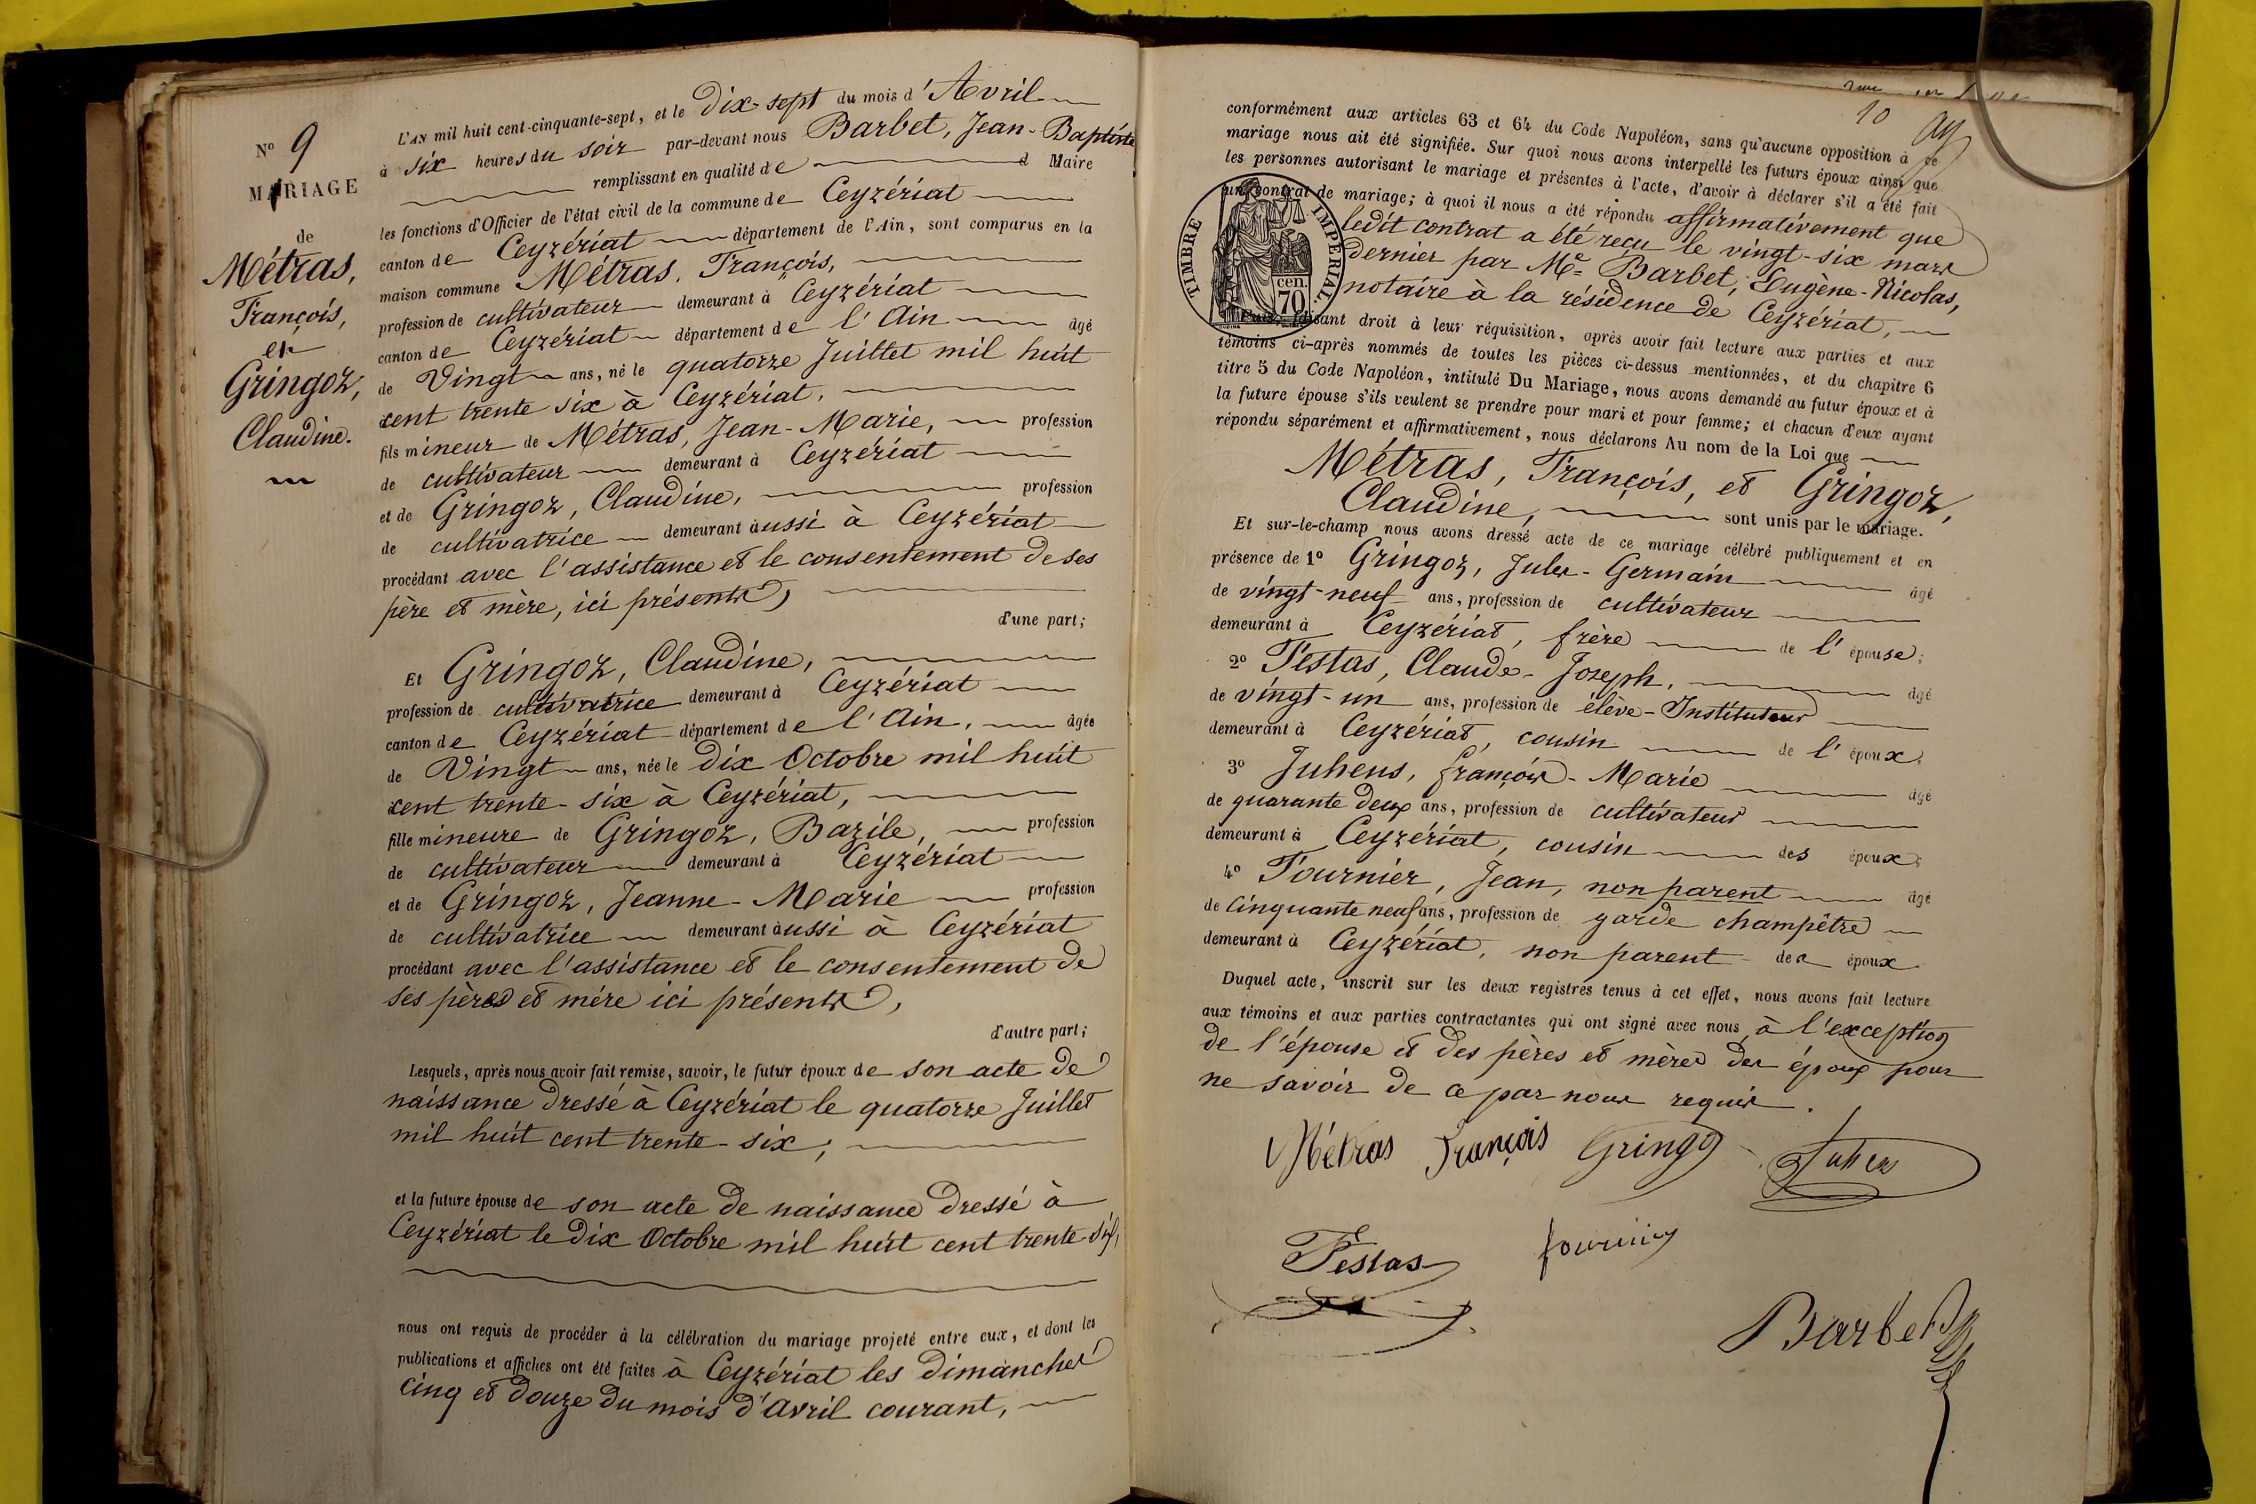 N° 9
MARIAGE
de
Métras,
François,
et
Gringoz,
Claudine.
L'AN mil huit cent-cinquante-sept, et le Dix-sept du mois d'Avril
à six heures du soir par-devant nous Barbet, Jean-Baptiste
remplissant en qualité de d Maire
les fonctions d'Officier de l'état civil de la commune de Ceyzériat
canton de Ceyzériat département de l'Ain, sont comparus en la
maison commune Métras, François,
profession de cultivateur demeurant à Ceyzériat
canton de Ceyzériat département de l'Ain âgé
de Vingt ans, né le quatorze Juillet mil huit
cent trente six à Ceyzériat,
fils mineur de Métras, Jean-Marie, profession
de cultivateur demeurant à Ceyzériat
et de Gringoz, Claudine, profession
de cultivatrice demeurant aussi à Ceyzériat
procédant avec l'assistance et le consentement de ses
père et mère, ici présents,
d'une part;
Et Gringoz, Claudine,
profession de cultivatrice demeurant à Ceyzériat
canton de Ceyzériat département de l'Ain, âgée
de Vingt ans, née le dix Octobre mil huit
cent trente-six à Ceyzériat,
fille mineure de Gringoz, Bazile, profession
de cultivateur demeurant à Ceyzériat
et de Gringoz, Jeanne-Marie profession
de cultivatrice demeurant aussi à Ceyzériat
procédant avec l'assistance et le consentement de
ses père et mère ici présents,
d'autre part;
Lesquels, après nous avoir fait remise, savoir, le futur époux de son acte de
naissance dressé à Ceyzériat le quatorze Juillet
mil huit cent trente-six;
et la future épouse de son acte de naissance dressé à
Ceyzériat le dix Octobre mil huit cent trente-six,
nous ont requis de procéder à la célébration du mariage projeté entre eux, et dont les
publications et affiches ont été faites à Ceyzériat les dimanches
cinq et douze du mois d'avril courant,
10
conformément aux articles 63 et 64 du Code Napoléon, sans qu'aucune opposition à ce
mariage nous ait été signifiée. Sur quoi nous avons interpellé les futurs époux ainsi que
les personnes autorisant le mariage et présentes à l'acte, d'avoir à déclarer s'il a été fait
un contrat de mariage; à quoi il nous a été répondu affirmativement que
ledit contrat a été reçu le vingt-six mars
dernier par Me Barbet, Eugène-Nicolas,
notaire à la résidence de Ceyzériat,
TIMBRE IMPÉRIAL.
70 cen.
Puis, faisant droit à leur réquisition, après avoir fait lecture aux parties et aux
témoins ci-après nommés de toutes les pièces ci-dessus mentionnées, et du chapitre 6
titre 5 du Code Napoléon, intitulé Du Mariage, nous avons demandé au futur époux et à
la future épouse s'ils veulent se prendre pour mari et pour femme; et chacun d'eux ayant
répondu séparément et affirmativement, nous déclarons Au nom de la Loi que
Métras, François, et Gringoz,
Claudine, sont unis par le mariage.
Et sur-le-champ nous avons dressé acte de ce mariage célébré publiquement et en
présence de 1° Gringoz, Jules-Germain âgé
de vingt-neuf ans, profession de cultivateur
demeurant à Ceyzériat, frère de l'épouse;
2° Testas, Claude-Joseph, âgé
de vingt-un ans, profession de élève-Instituteur
demeurant à Ceyzériat, cousin de l'époux;
3° Juhens, françois-Marie âgé
de quarante deux ans, profession de cultivateur
demeurant à Ceyzériat, cousin des époux;
4° Fournier, Jean, non parent âgé
de cinquante neuf ans, profession de garde champêtre
demeurant à Ceyzériat, non parent des époux
Duquel acte, inscrit sur les deux registres tenus à cet effet, nous avons fait lecture
aux témoins et aux parties contractantes qui ont signé avec nous, à l'exception
de l'épouse et des pères et mères des époux pour
ne savoir de ce par nous requis.
Métras François Gringoz Juhens
Testas fournier
Barbet